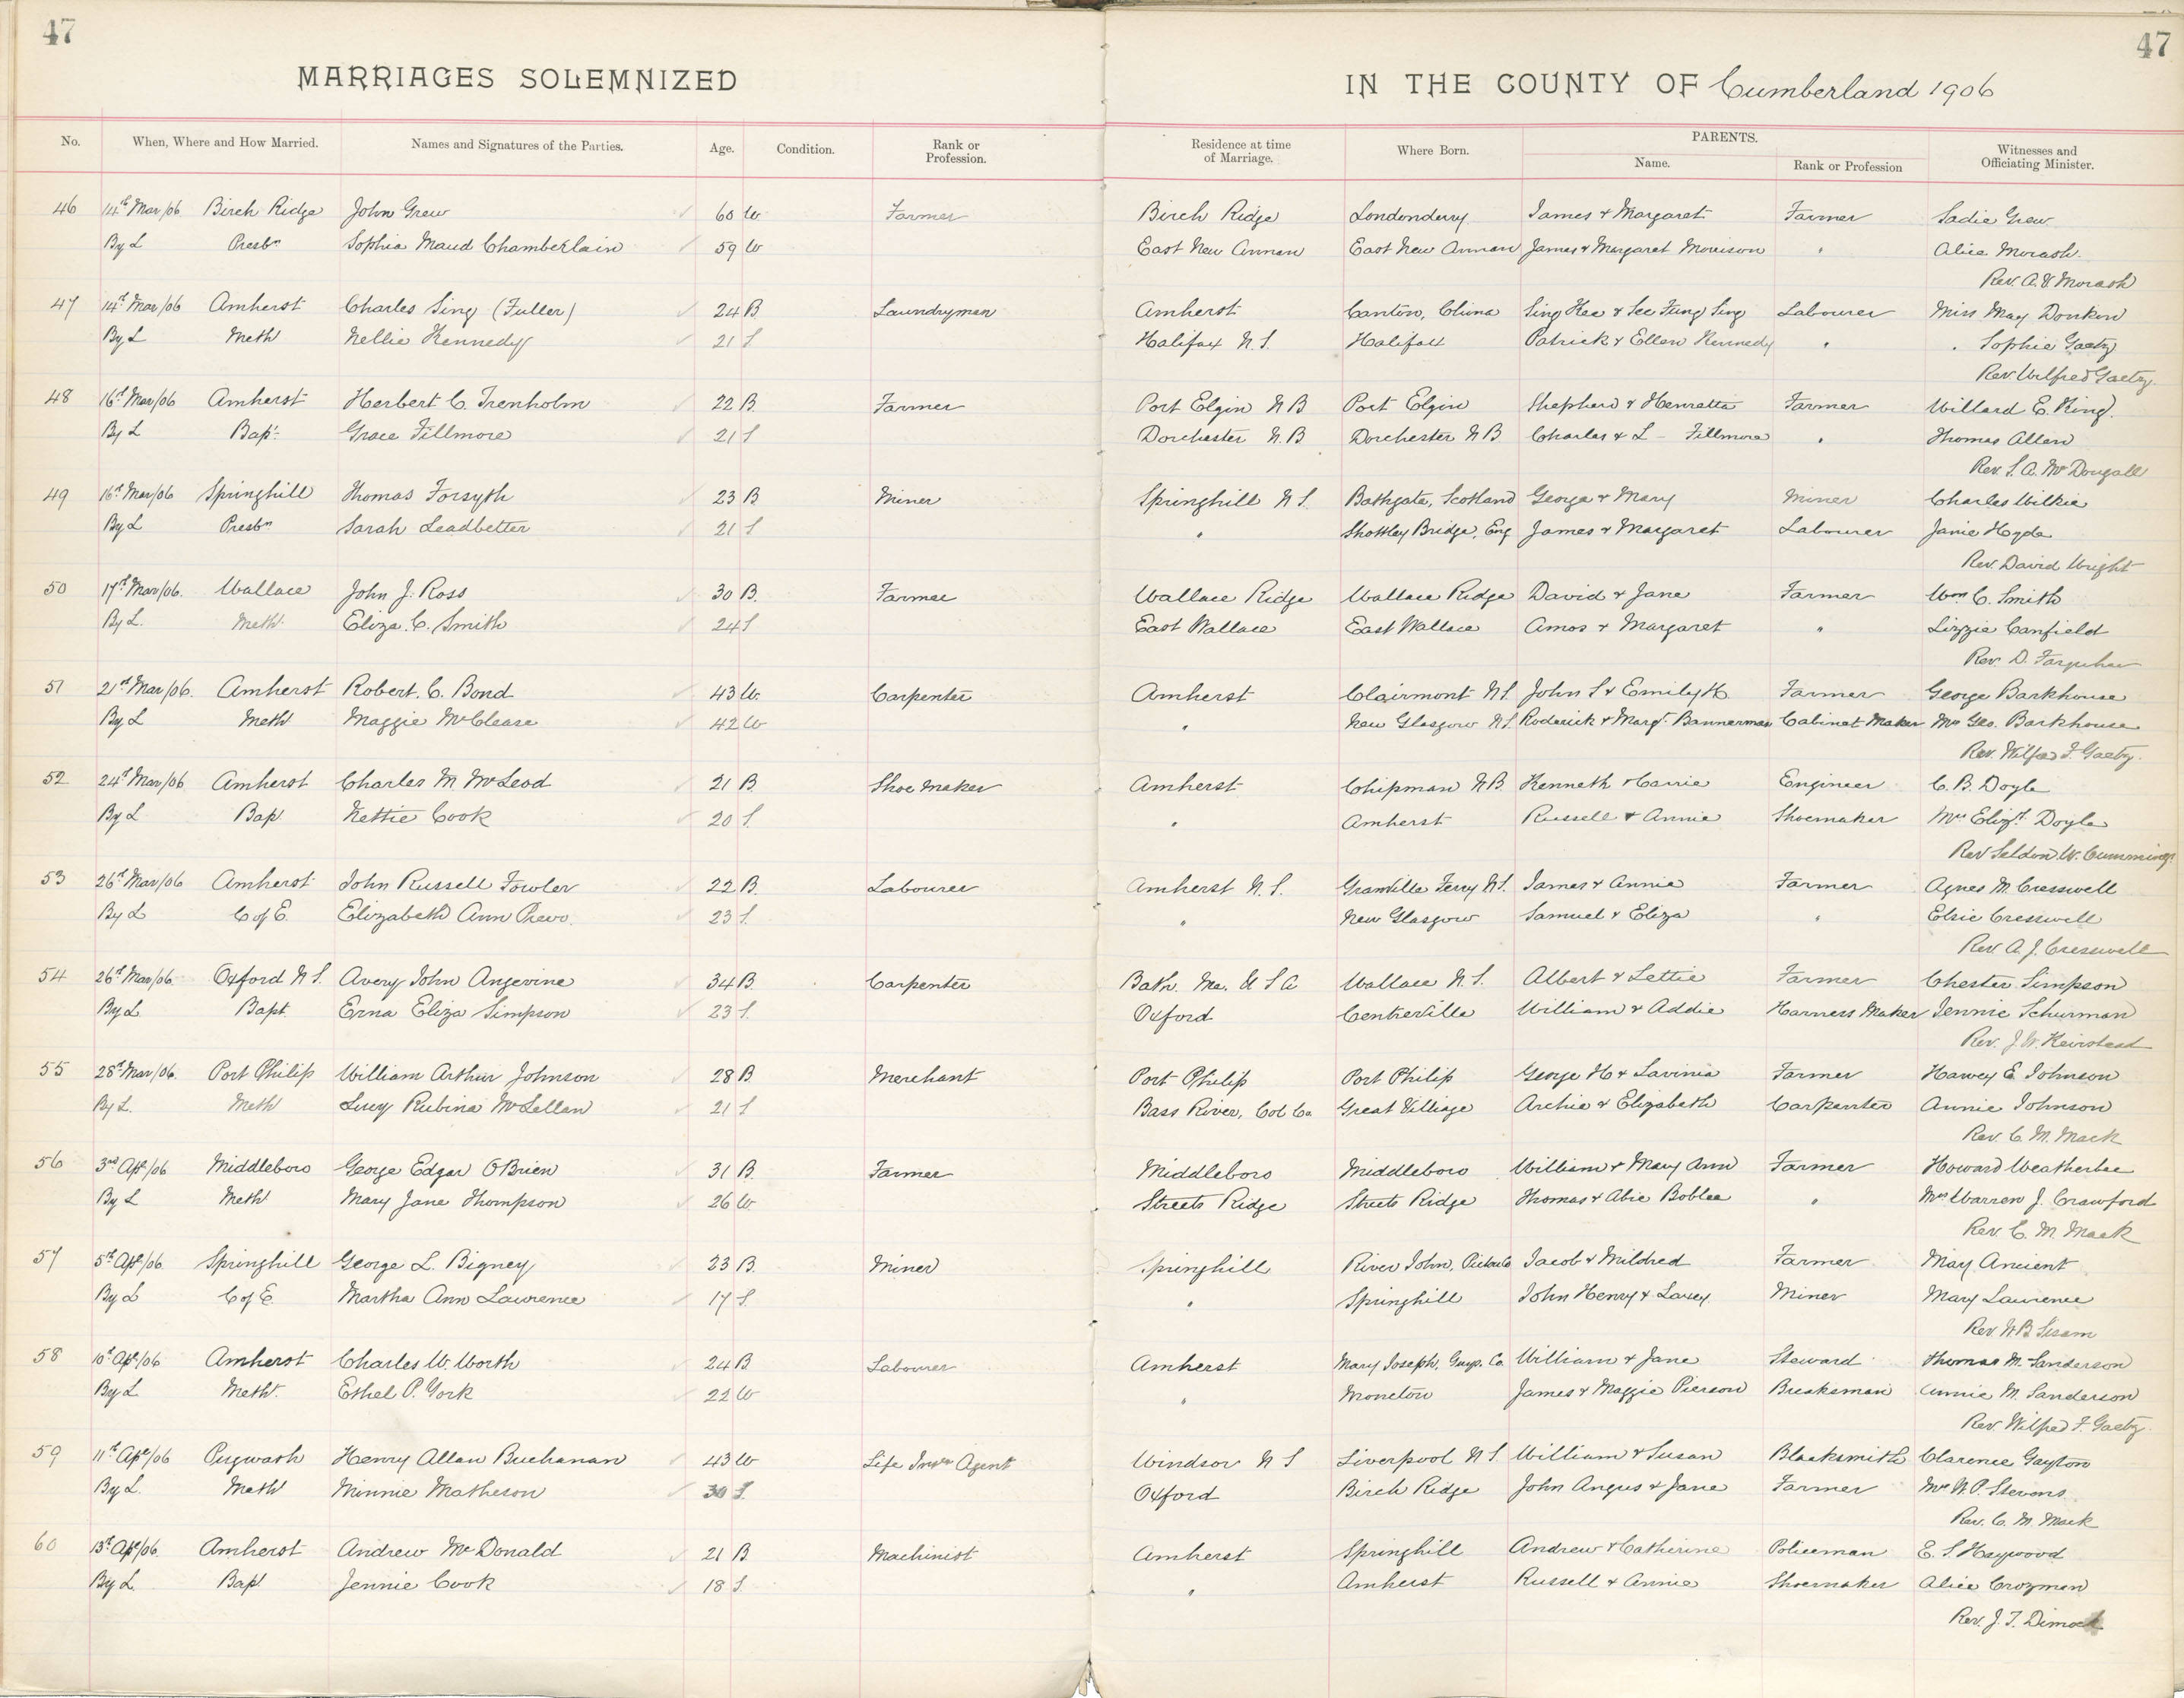 47
47
MARRIAGES SOLEMNIZED IN THE COUNTY OF Cumberland 1906
No. When, Where and How Married. Names and Signatures of the Parties. Age. Condition. Rank or Profession. Residence at time of Marriage. Where Born. PARENTS. Name. Rank or Profession Witnesses and Officiating Minister.
46 14th Mar/06 Birch Ridge John Grew 60 W Farmer Birch Ridge Londonderry James & Margaret Farmer Sadie Grew
By L Presbn Sophia Maud Chamberlain 59 W East New Annan East New Annan James & Margaret Morrison " Alice Morash
Rev. A. Morash
47 14th Mar/06 Amherst Charles Sing (Fuller) 24 B Laundryman Amherst Canton, China Sing Hee & See Fung Sing Labourer Miss May Donkin
By L Meth Nellie Kennedy 21 S Halifax N.S. Halifax Patrick & Ellen Kennedy " " Sophie Gaetz
Rev. Wilfred Gaetz
48 16th Mar/06 Amherst Herbert C. Trenholm 22 B Farmer Port Elgin N B Port Elgin Shepherd & Henretta Farmer Willard E. King
By L Bapt Grace Fillmore 21 S Dorchester N.B Dorchester N B Charles & L - Fillmore " Thomas Allen
Rev. S. A. McDougall
49 16th Mar/06 Springhill Thomas Forsyth 23 B Miner Springhill N S. Bathgate, Scotland George & Mary Miner Charles Wilkie
By L Presbn Sarah Leadbetter 21 S " Shottley Bridge, Eng James & Margaret Labourer Janie Hyde
Rev. David Wright
50 17th Mar/06. Wallace John J. Ross 30 B. Farmer Wallace Ridge Wallace Ridge David & Jane Farmer Wm C. Smith
By L. Meth Eliza C. Smith 24 S East Wallace East Wallace Amos & Margaret " Lizzie Canfield
Rev. D. Farquhar
51 21st Mar/06. Amherst Robert. C. Bond 43 W. Carpenter Amherst Clairmont N.S. John S & Emily H. Farmer George Barkhouse
By L Meth Maggie McCleare 42 W " New Glasgow N.S. Roderick & Margt Bannerman Cabinet Maker Mrs Geo. Barkhouse
Rev. Wilfred F. Gaetz
52 24th Mar/06 Amherst Charles M McLeod 21 B. Shoe maker Amherst Chipman N B. Kenneth & Carrie Engineer C. B. Doyle
By L Bap Nettie Cook 20 S. " Amherst Russell & Annie Shoemaker Mrs Elizth Doyle
Rev Seldon W. Cummings
53 26th Mar/06 Amherst John Russell Fowler 22 B. Labourer Amherst N. S. Granville Ferry N.S. James & Annie Farmer Agnes M. Cresswell
By L C of E. Elizabeth Ann 23 S. " New Glasgow Samuel & Eliza " Elsie Cresswell
Rev. A. J. Cresswell
54 26th Mar/06. Oxford N S. Avery John Angevine 34 B. Carpenter Bath. Me. U S A Wallace N. S. Albert & Lettie Farmer Chester Simpson
By L Bapt Erna Eliza Simpson 23 S. Oxford Centreville William & Addie Harness Maker Jennie Schurman
Rev. J. W. Keirstead
55 28th Mar/06. Port Philip William Arthur Johnson 28 B Merchant Port Philip Port Philip George H & Lavinia Farmer Harvey E Johnson
By L. Meth Lucy Rubina McLellan 21 S Bass River, Col Co. Great Village Archie & Elizabeth Carpenter Annie Johnson
Rev. C. M. Mack
56 3rd Apl/06 Middleboro George Edgar O'Brien 31 B. Farmer Middleboro Middleboro William & Mary Ann Farmer Howard Weatherbee
By L Meth Mary Jane Thompson 26 W. Streets Ridge Streets Ridge Thomas & Abie Boblee " Mrs Warren J. Crawford
Rev. C. M. Mack
57 5th Apl/06. Springhill George L. Bigney 23 B. Miner Springhill River John, Pictou Co Jacob & Mildred Farmer May Ancient
By L C of E. Martha Ann Lawrence 17 S. " Springhill John Henry & Lavey Miner Mary Lawrence
Rev. W B Sisam
58 10th Apl/06 Amherst Charles W. Worth 24 B Labourer Amherst Mary Joseph, Guys. Co. William & Jane Steward Thomas M. Sanderson
By L Meth. Ethel P. York 22 W " Moncton James & Maggie Pierson Breaksman Annie M. Sanderson
Rev. Wilfred F. Gaetz
59 11th Apl/06 Pugwash Henry Allan Buchanan 43 W Life Insce Agent Windsor N S Liverpool N S. William & Susan Blacksmith Clarence Gayton
By L. Meth Minnie Matheson 30 S. Oxford Birch Ridge John Angus & Jane Farmer Mrs W. P. Stevens
Rev. C. M. Mack
60 13th Apl/06 Amherst Andrew McDonald 21 B Machinist Amherst Springhill Andrew & Catherine Policeman E. S. Haywood
By L. Bapt Jennie Cook 18 S. " Amherst Russell & Annie Shoemaker Alice Crozman
Rev. J. T. Dimock